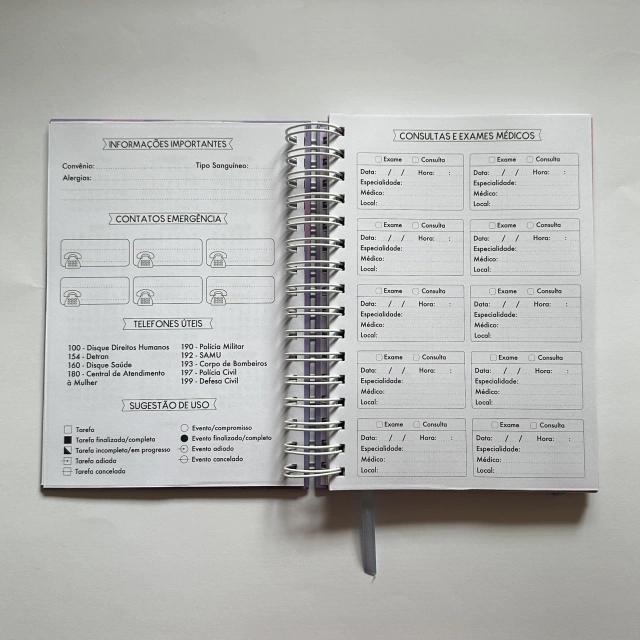 INFORMAÇÕES IMPORTANTES
Convênio: Tipo Sanguíneo:
Alergias:
CONTATOS EMERGÊNCIA
TELEFONES ÚTEIS
100 - Disque Direitos Humanos
154 - Detran
160 - Disque Saúde
180 - Central de Atendimento
à Mulher
190 - Polícia Militar
192 - SAMU
193 - Corpo de Bombeiros
197 - Polícia Civil
199 - Defesa Civil
SUGESTÃO DE USO
Tarefa
Tarefa finalizada/completa
Tarefa incompleta/em progresso
Tarefa adiada
Tarefa cancelada
Evento/compromisso
Evento finalizado/completo
Evento adiado
Evento cancelado
CONSULTAS E EXAMES MÉDICOS
Exame Consulta
Data: / / Hora: :
Especialidade:
Médico:
Local:
Exame Consulta
Data: / / Hora: :
Especialidade:
Médico:
Local:
Exame Consulta
Data: / / Hora: :
Especialidade:
Médico:
Local:
Exame Consulta
Data: / / Hora: :
Especialidade:
Médico:
Local:
Exame Consulta
Data: / / Hora: :
Especialidade:
Médico:
Local:
Exame Consulta
Data: / / Hora: :
Especialidade:
Médico:
Local:
Exame Consulta
Data: / / Hora: :
Especialidade:
Médico:
Local:
Exame Consulta
Data: / / Hora: :
Especialidade:
Médico:
Local:
Exame Consulta
Data: / / Hora: :
Especialidade:
Médico:
Local:
Exame Consulta
Data: / / Hora: :
Especialidade:
Médico:
Local: